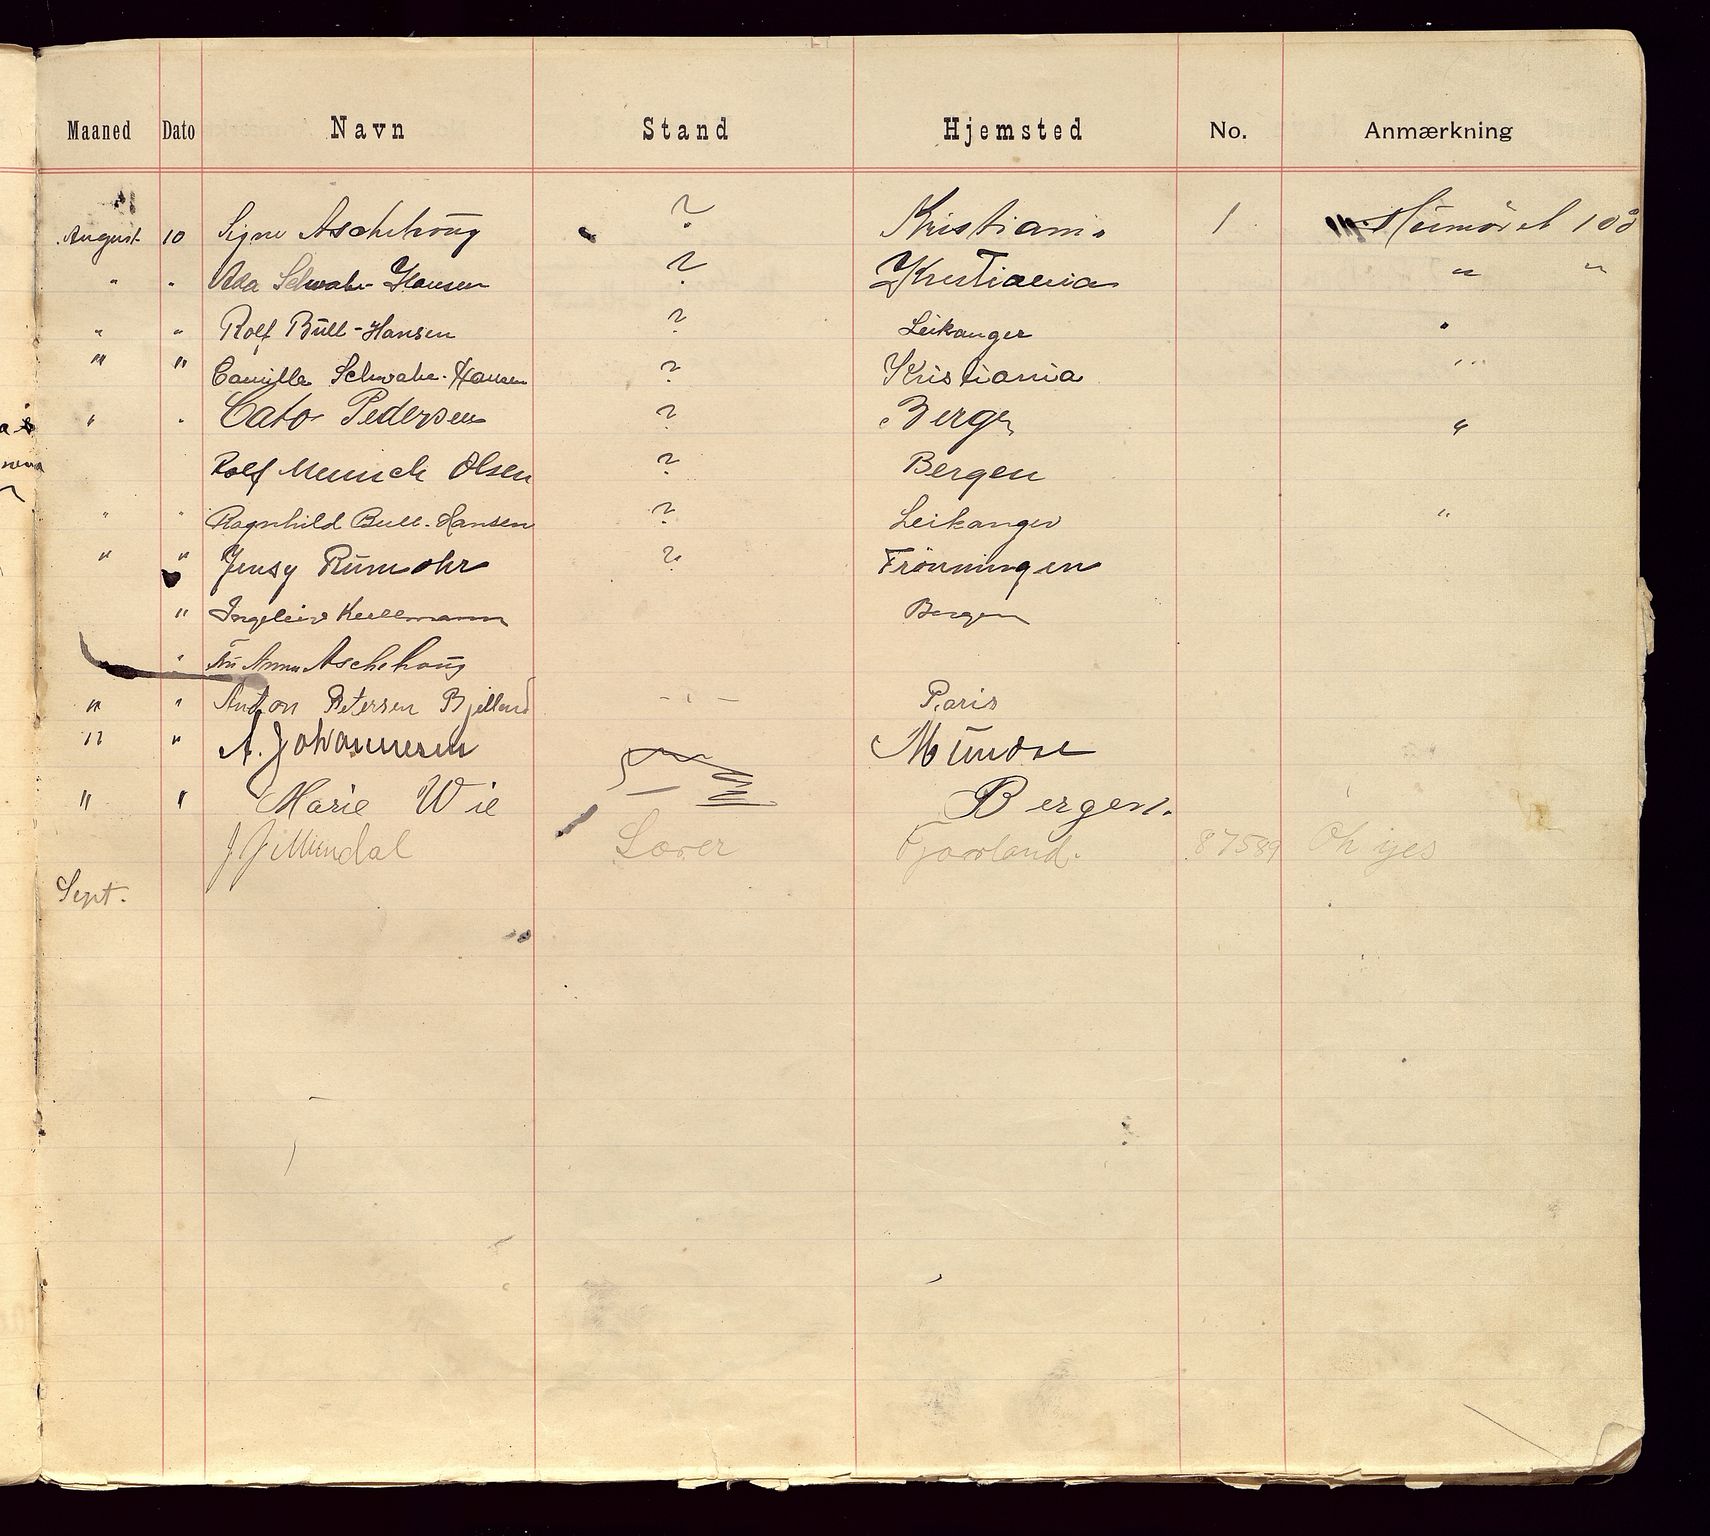 Maaned Dato Navn Stand Hjemsted No. Anmærkning
August 10 Signe Aschehoug ? Kristiania 1 Humöret 100
" " Ada Schwabe-Hansen ? Kristiania " "
" " Rolf Bull-Hansen ? Leikanger "
" " Camilla Schwabe-Hansen ? Kristiania " "
" " Cato Pedersen ? Bergen "
Rolf Munch Olsen ? Bergen
" " Ragnhild Bull-Hansen ? Leikanger "
" " Jensy Rumohr ? Frönningen
" Ingeleiv Kullmann Bergen
" Fru Anna Aschehoug
" " Anton Petersen Bjelland - " - Paris
" " A. Johannesen Mundal
" " Marie Wie Bergen.
J J Mundal Lærer Fjærland. 87589 Oh yes
Sept.